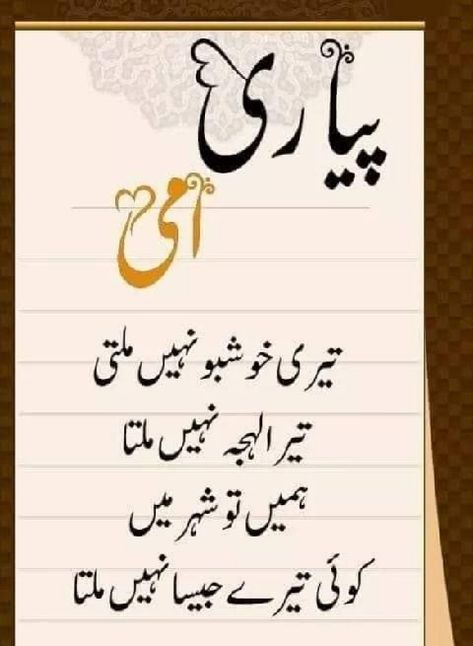 پیاری
امی
تیری خوشبو نہیں ملتی
تیرا لہجہ نہیں ملتا
ہمیں تو شہر میں
کوئی تیرے جیسا نہیں ملتا